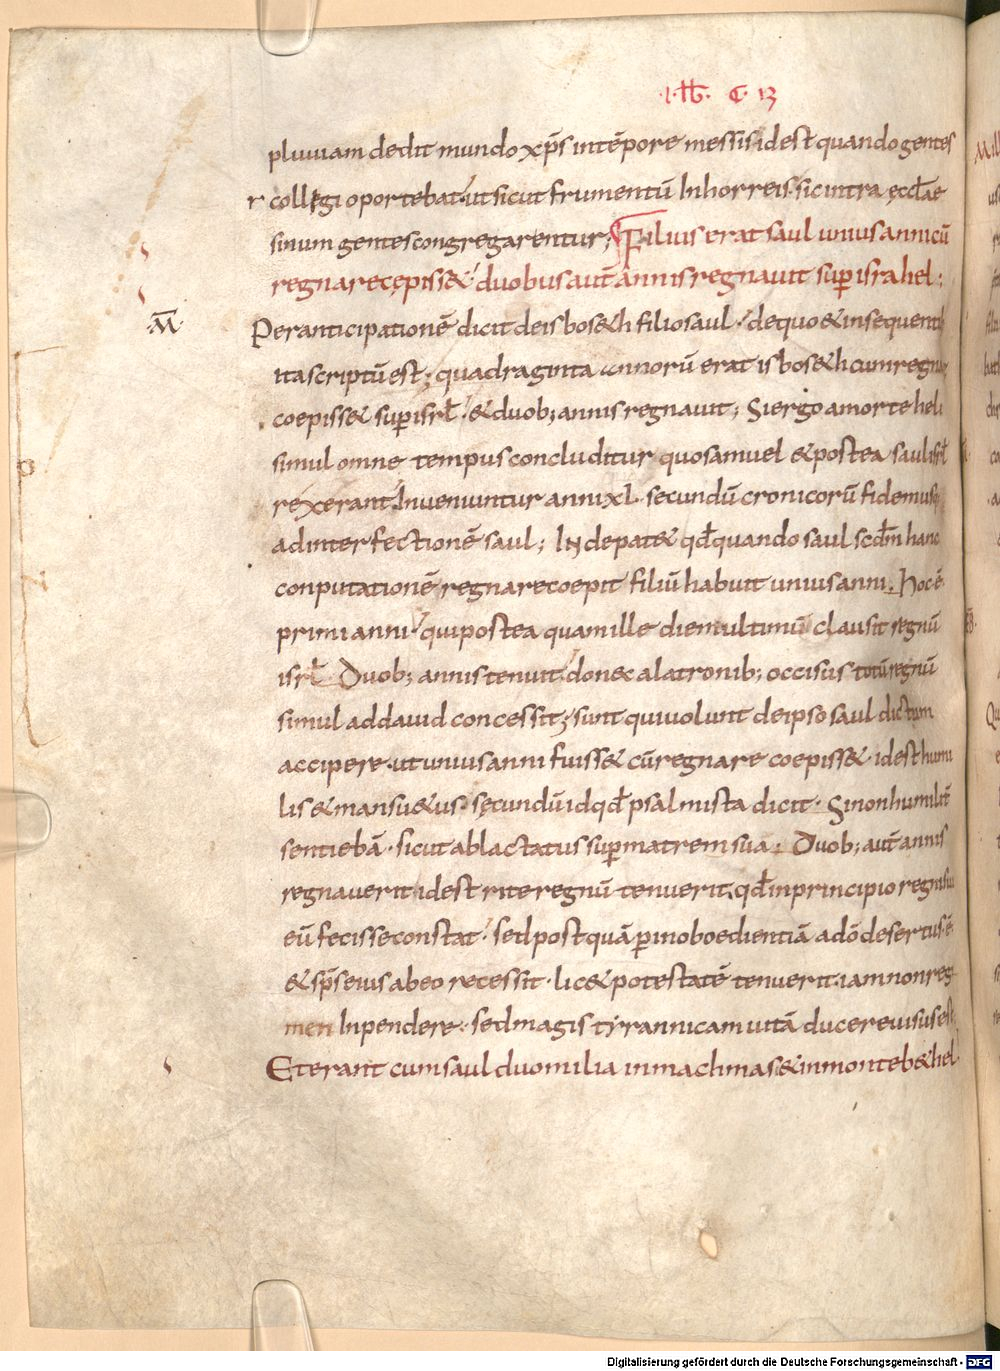 ·I· Lib· C· 13
pluuiam dedit mundo xp̄s intēpore messis idest quando gentes
r collegi oportebat· ut sicut frumentū Inhorreis· sicintra ęccl̄ae
sinum gentes congregarentur; Filius erat saul unius anni cū
regnare cępiss&· duobus aut̄ annis regnauit sup israhel;
M̄
Per anticipationē dicit deisbos&h filio saul· dequo & insequentib
ita scriptū est; quadraginta annorū erat isbos&h cum regnare
coepiss& sup isrl̄· & duob; annis regnauit; Si ergo amorte heli
simul omne tempus concluditur quo samuel & postea saul isrl̄
rexerant Inueniuntur anni xl· secundū cronicorū fidem usq;
ad interfectionē saul; Inde pat& qd̄ quando saul scdm̄ hanc
conputationē regnare coepit filiū habuit unius anni· hoc ē
primi anni· qui postea quam ille diem ultimū clausit regnū
isrl̄ Duob; annis tenuit· donec alatronib; occisus totū regnū
simul addauid concessit; sunt qui uolunt deipso saul dictum
accipere· ut unius anni fuiss& cū regnare coepiss&· idest humi
lis & mansu&us· secundū id qd̄ psalmista dicit· Si non humilit̄
sentiebā· sicut ablactatus sup matrem suā· Duob; aut̄ annis
regnauerit· idest rite regnū tenuerit· qd̄ inprincipio regni sui
eū fecisse constat· sed postquā p inoboedientiā adō desertus ē
& sp̄s eius abeo recessit· lic& potestatē tenuerit· iam non reg
men Inpendere· sed magis tyrannicam uitā ducere uisus est
Et erant cum saul duo milia inmachmas & inmonte b&hel·
Digitalisierung gefördert durch die Deutsche Forschungsgemeinschaft - DFG